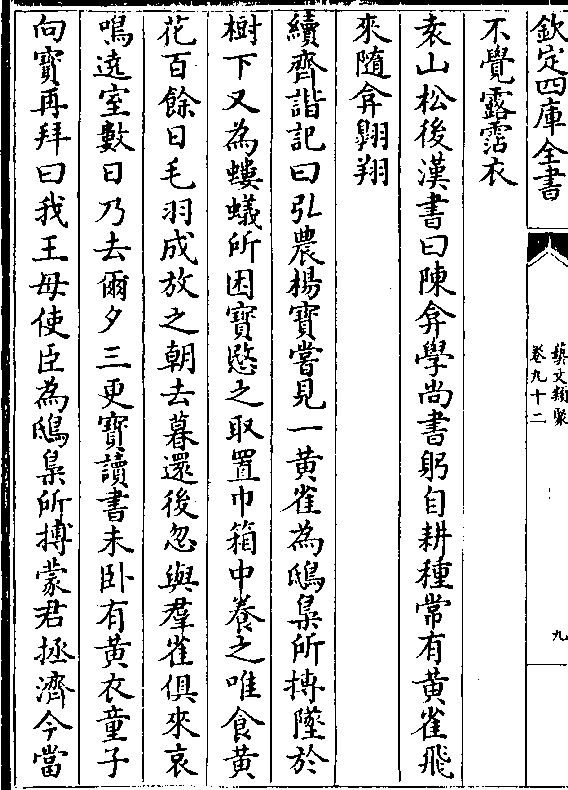 欽定四庫全書
藝文類聚
卷九十二
九
不覺露霑衣
袁山松後漢書曰陳弇學尚書躬自耕種常有黄雀飛
來隨弇翺翔
續齊諧記曰弘農楊寶嘗見一黄雀為鴟梟所摶墜於
樹下又為螻蟻所困寶愍之取置巾箱中養之唯食黄
花百餘日毛羽成放之朝去暮還後忽與羣雀俱來哀
鳴遶室數日乃去爾夕三更寶讀書未卧有黄衣童子
向寶再拜曰我王母使臣為鴟梟所摶蒙君拯濟今當